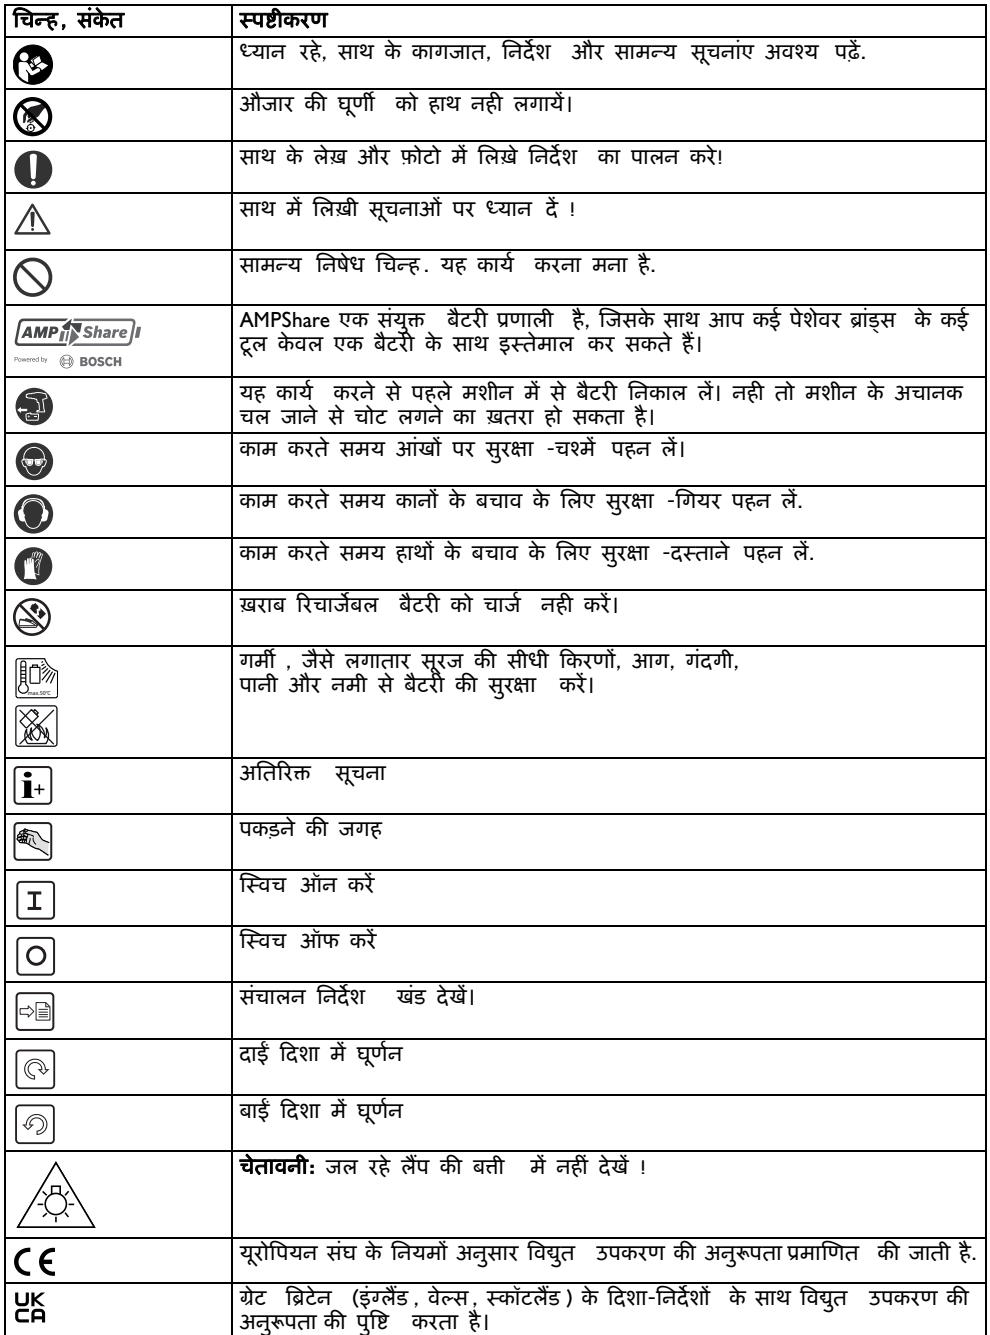 चिन्ह, संकेत	स्पष्टीकरण
ध्यान रहे, साथ के कागजात, निर्देश और सामन्य सूचनांए अवश्य पढ़ें.
औजार की घूर्णी को हाथ नही लगायें।
साथ के लेख़ और फ़ोटो में लिख़े निर्देश का पालन करे!
साथ में लिख़ी सूचनाओं पर ध्यान दें !
सामन्य निषेध चिन्ह. यह कार्य करना मना है.
AMPShare
Powered by BOSCH
AMPShare एक संयुक्त बैटरी प्रणाली है, जिसके साथ आप कई पेशेवर ब्रांड्स के कई
टूल केवल एक बैटरी के साथ इस्तेमाल कर सकते हैं।
यह कार्य करने से पहले मशीन में से बैटरी निकाल लें। नही तो मशीन के अचानक
चल जाने से चोट लगने का ख़तरा हो सकता है।
काम करते समय आंखों पर सुरक्षा -चश्में पहन लें।
काम करते समय कानों के बचाव के लिए सुरक्षा -गियर पहन लें.
काम करते समय हाथों के बचाव के लिए सुरक्षा -दस्ताने पहन लें.
ख़राब रिचार्जेबल बैटरी को चार्ज नही करें।
max.50°C
गर्मी , जैसे लगातार सूरज की सीधी किरणों, आग, गंदगी,
पानी और नमी से बैटरी की सुरक्षा करें।
i+	अतिरिक्त सूचना
पकड़ने की जगह
I	स्विच ऑन करें
O	स्विच ऑफ करें
संचालन निर्देश खंड देखें।
दाईं दिशा में घूर्णन
बाईं दिशा में घूर्णन
चेतावनी: जल रहे लैंप की बत्ती में नहीं देखें !
CE	यूरोपियन संघ के नियमों अनुसार विद्युत उपकरण की अनुरूपता प्रमाणित की जाती है.
UK
CA
ग्रेट ब्रिटेन (इंग्लैंड , वेल्स , स्कॉटलैंड ) के दिशा-निर्देशों के साथ विद्युत उपकरण की
अनुरूपता की पुष्टि करता है।